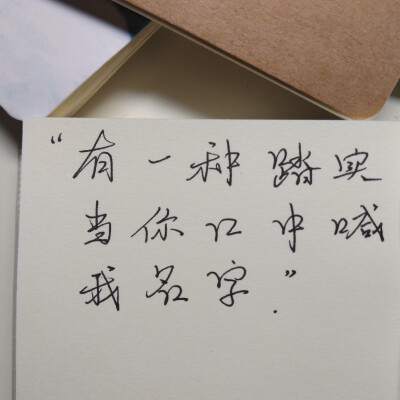 “有一种踏实
当你口中喊
我名字.”